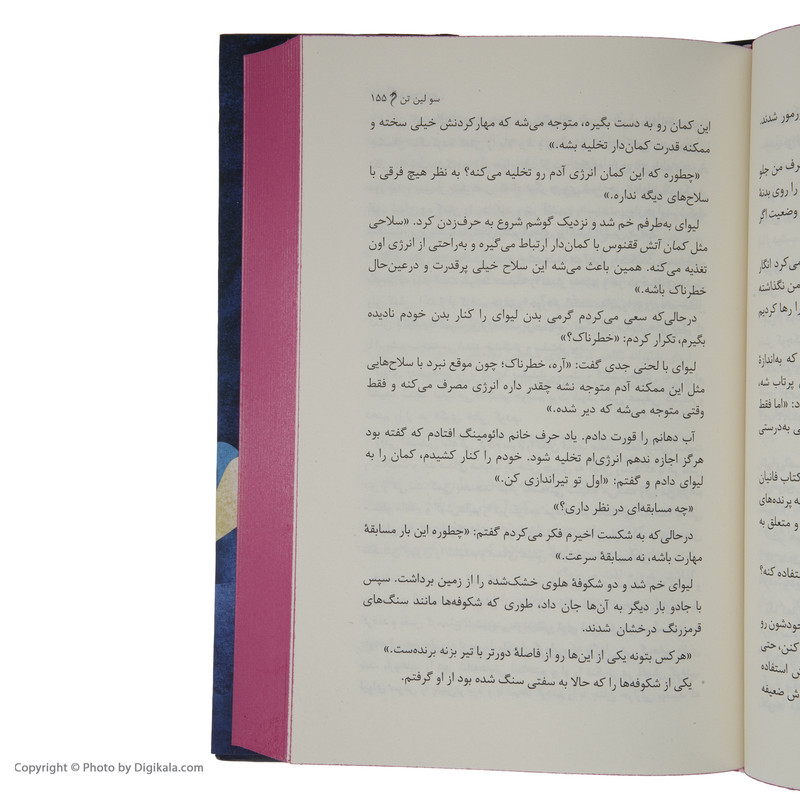 سو لین تن ۱۵۵
این کمان رو به دست بگیره، متوجه می‌شه که مهارکردنش خیلی سخته و
ممکنه قدرت کمان‌دار تخلیه بشه.»
«چطوره که این کمان انرژی آدم رو تخلیه می‌کنه؟ به نظر هیچ فرقی با
سلاح‌های دیگه نداره.»
لیوای به‌طرفم خم شد و نزدیک گوشم شروع به حرف‌زدن کرد. «سلاحی
مثل کمان آتش ققنوس با کمان‌دار ارتباط می‌گیره و به‌راحتی از انرژی اون
تغذیه می‌کنه. همین باعث می‌شه این سلاح خیلی پرقدرت و درعین‌حال
خطرناک باشه.»
درحالی‌که سعی می‌کردم گرمی بدن لیوای را کنار بدن خودم نادیده
بگیرم، تکرار کردم: «خطرناک؟»
لیوای با لحنی جدی گفت: «آره، خطرناک؛ چون موقع نبرد با سلاح‌هایی
مثل این ممکنه آدم متوجه نشه چقدر داره انرژی مصرف می‌کنه و فقط
وقتی متوجه می‌شه که دیر شده.»
آب دهانم را قورت دادم. یاد حرف خانم دائومینگ افتادم که گفته بود
هرگز اجازه ندهم انرژی‌ام تخلیه شود. خودم را کنار کشیدم، کمان را به
لیوای دادم و گفتم: «اول تو تیراندازی کن.»
«چه مسابقه‌ای در نظر داری؟»
درحالی‌که به شکست اخیرم فکر می‌کردم گفتم: «چطوره این بار مسابقهٔ
مهارت باشه، نه مسابقهٔ سرعت.»
لیوای خم شد و دو شکوفهٔ هلوی خشک‌شده را از زمین برداشت. سپس
با جادو بار دیگر به آن‌ها جان داد، طوری که شکوفه‌ها مانند سنگ‌های
قرمزرنگ درخشان شدند.
«هرکس بتونه یکی از این‌ها رو از فاصلهٔ دورتر با تیر بزنه برنده‌ست.»
یکی از شکوفه‌ها را که حالا به سفتی سنگ شده بود از او گرفتم.
شدند.
من جلو
را روی بدنهٔ
وضعیت اگر
می‌کرد انگار
من نگذاشته
را رها کردیم
که به‌اندازهٔ
پرتاب شه،
«اما فقط
به‌درستی
کتاب فانیان
پرنده‌های
و متعلق به
استفاده کنه؟
خودشون رو
کنن، حتی
استفاده
ضعیفه
Copyright © Photo by Digikala.com